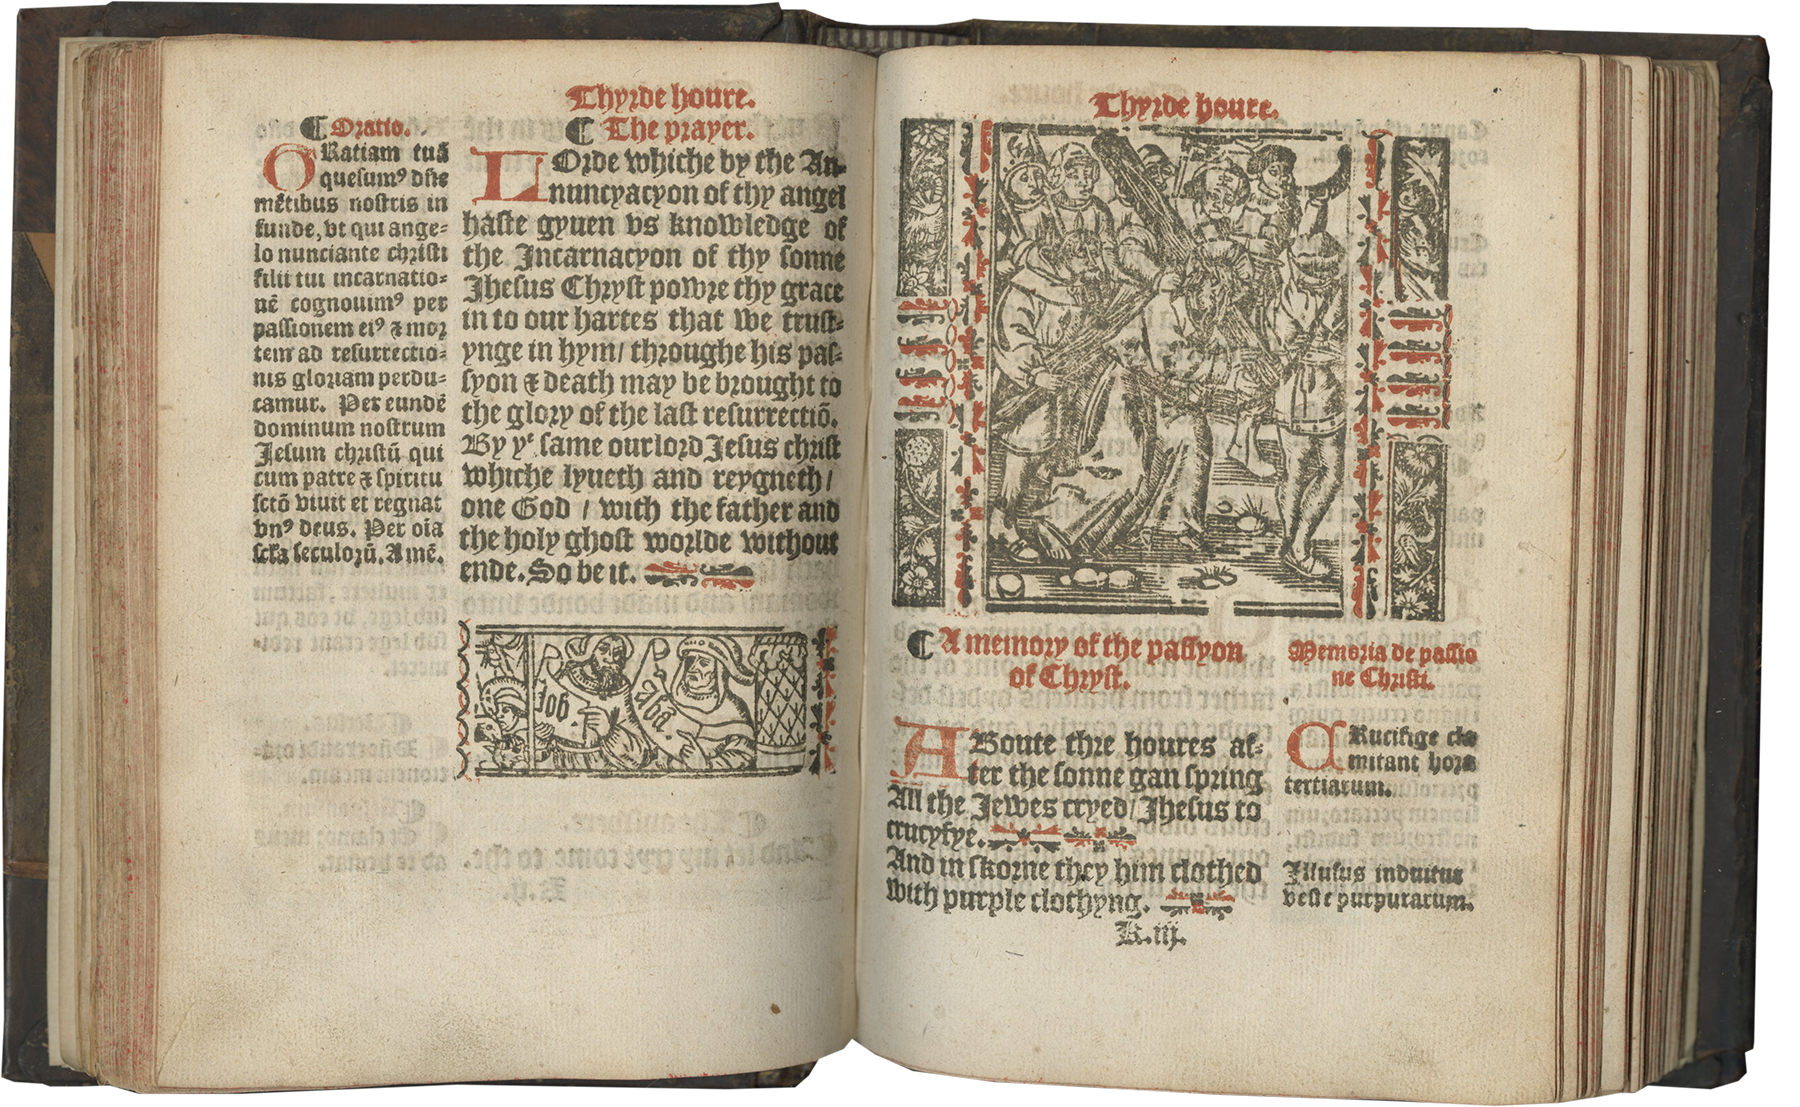 Thyrde houre.
¶ Oratio.
GRatiam tuā
quesumꝰ dn̄e
mētibus nostris in
funde, vt qui ange-
lo nunciante christi
filii tui incarnatio-
nē cognouimꝰ per
passionem eiꝰ ⁊ mor
tem ad resurrectio-
nis gloriam perdu-
camur. Per eundē
dominum nostrum
Jesum christū qui
cum patre ⁊ spiritu
sctō viuit et regnat
vnꝰ deus. Per oīa
scl̄a seculorū. Amē.
¶ The prayer.
LOrde whiche by the An-
nuncyacyon of thy angel
haste gyuen vs knowledge of
the Incarnacyon of thy sonne
Jhesus Chryst powre thy grace
in to our hartes that we trust-
ynge in hym/ throughe his pas-
syon ⁊ death may be brought to
the glory of the last resurrectiō.
By yͤ same our lord Jesus christ
whiche lyueth and reygneth/
one God / with the father and
the holy ghost worlde without
ende. So be it.
Job.
Aba.
Thyrde houre.
¶ A memory of the passyon
of Chryst.
ABoute thre houres af-
ter the sonne gan spring
All the Jewes cryed/ Jhesus to
crucyfye.
And in skorne they him clothed
with purple clothyng.
K.iij.
Memoria de passio
ne Christi.
CRucifige cla
mitant hora
tertiarum.
Illusus induitur
veste purpurarum.